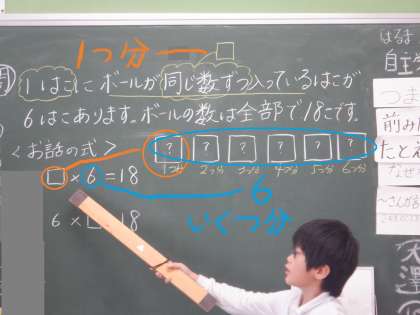 1つ分
□
問
1はこにボールが同じ数ずつ入っているはこが
6はこあります。ボールの数は全部で18こです。
<お話の式>
□×6=18
? ? ? ? ? ?
1つ分 2つ分 3つ分 4つ分 5つ分 6つ分
6
いくつ分
6×□=18
はるま
自主
つま
前み
たとえ
なぜ
～さんが言